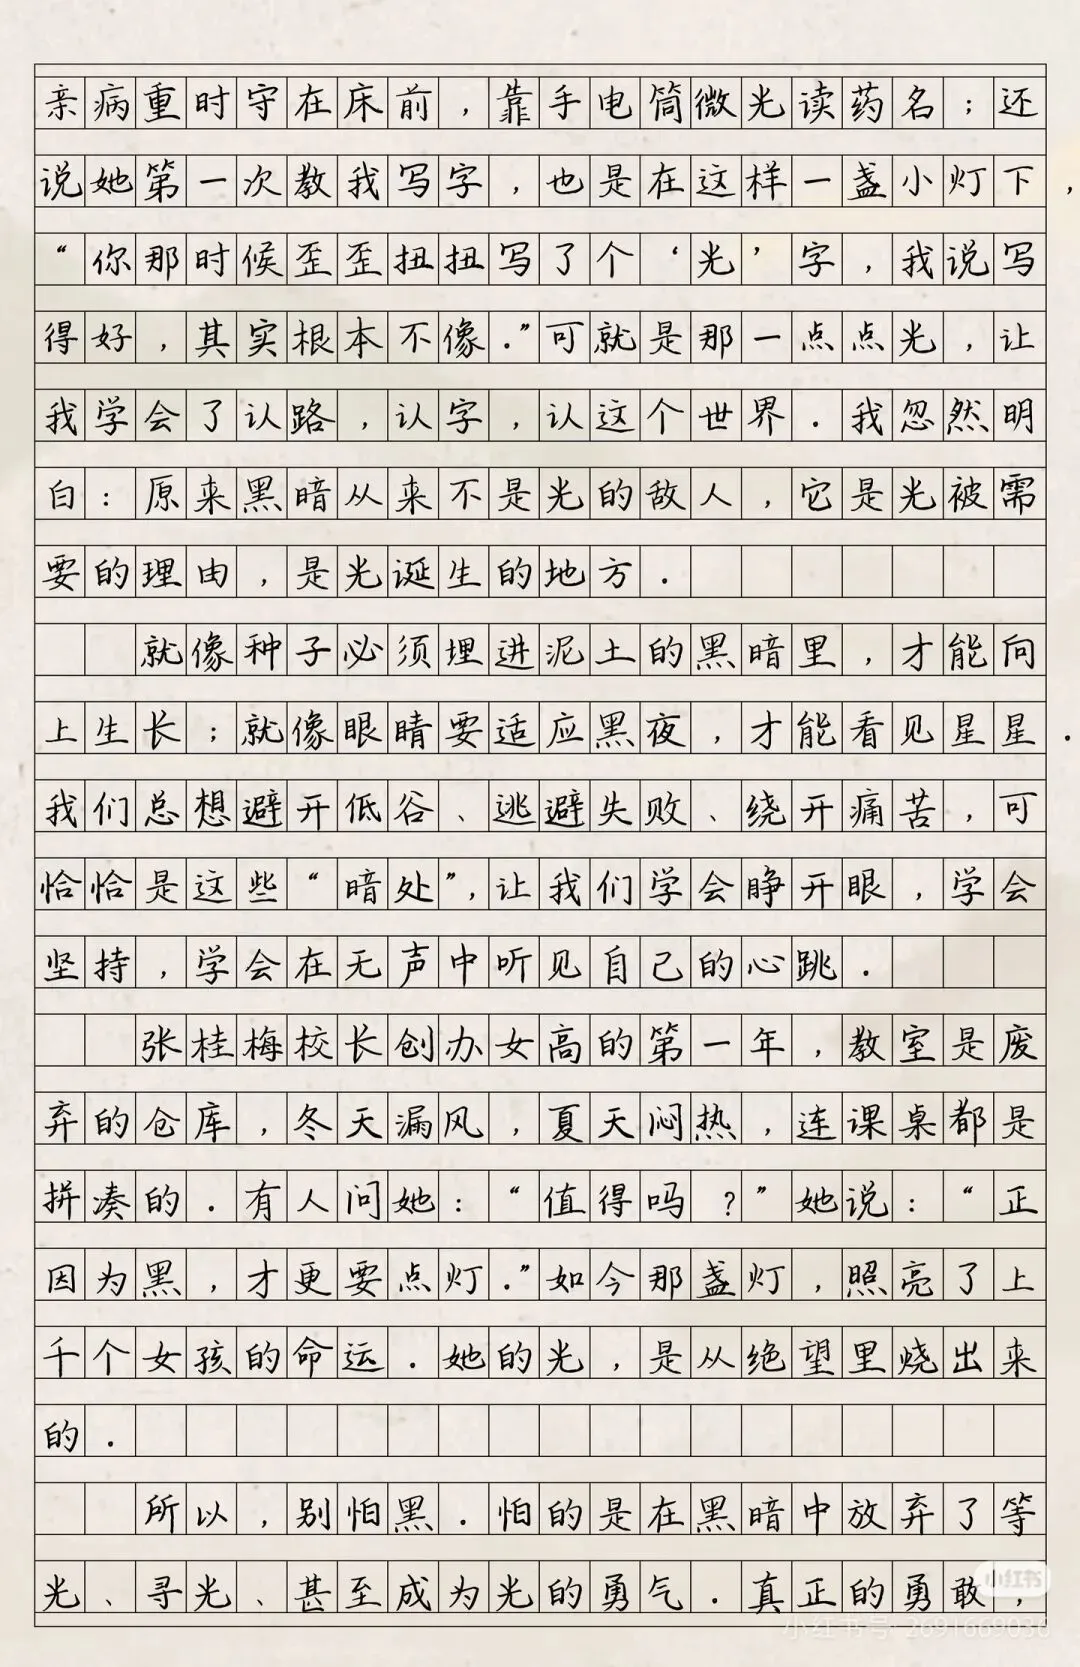 亲病重时守在床前，靠手电筒微光读药名；还
说她第一次教我写字，也是在这样一盏小灯下，
“你那时候歪歪扭扭写了个‘光’字，我说写
得好，其实根本不像．”可就是那一点点光，让
我学会了认路，认字，认这个世界．我忽然明
白：原来黑暗从来不是光的敌人，它是光被需
要的理由，是光诞生的地方．
就像种子必须埋进泥土的黑暗里，才能向
上生长；就像眼睛要适应黑夜，才能看见星星．
我们总想避开低谷、逃避失败、绕开痛苦，可
恰恰是这些“暗处”，让我们学会睁开眼，学会
坚持，学会在无声中听见自己的心跳．
张桂梅校长创办女高的第一年，教室是废
弃的仓库，冬天漏风，夏天闷热，连课桌都是
拼凑的．有人问她：“值得吗？”她说：“正
因为黑，才更要点灯．”如今那盏灯，照亮了上
千个女孩的命运．她的光，是从绝望里烧出来
的．
所以，别怕黑．怕的是在黑暗中放弃了等
光、寻光、甚至成为光的勇气．真正的勇敢，
小红书
小红书号：2691669036